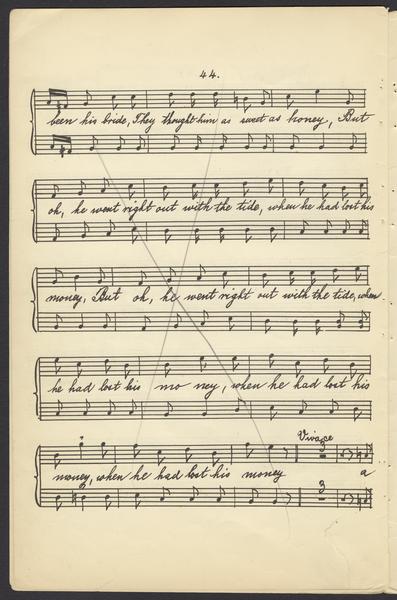 44.
been his bride, They thought him as sweet as honey, But
oh, he went right out with the tide, when he had lost his
money, But oh, he went right out with the tide, when
he had lost his mo ney, when he had lost his
Vivace
money, when he had lost his money a
3
3